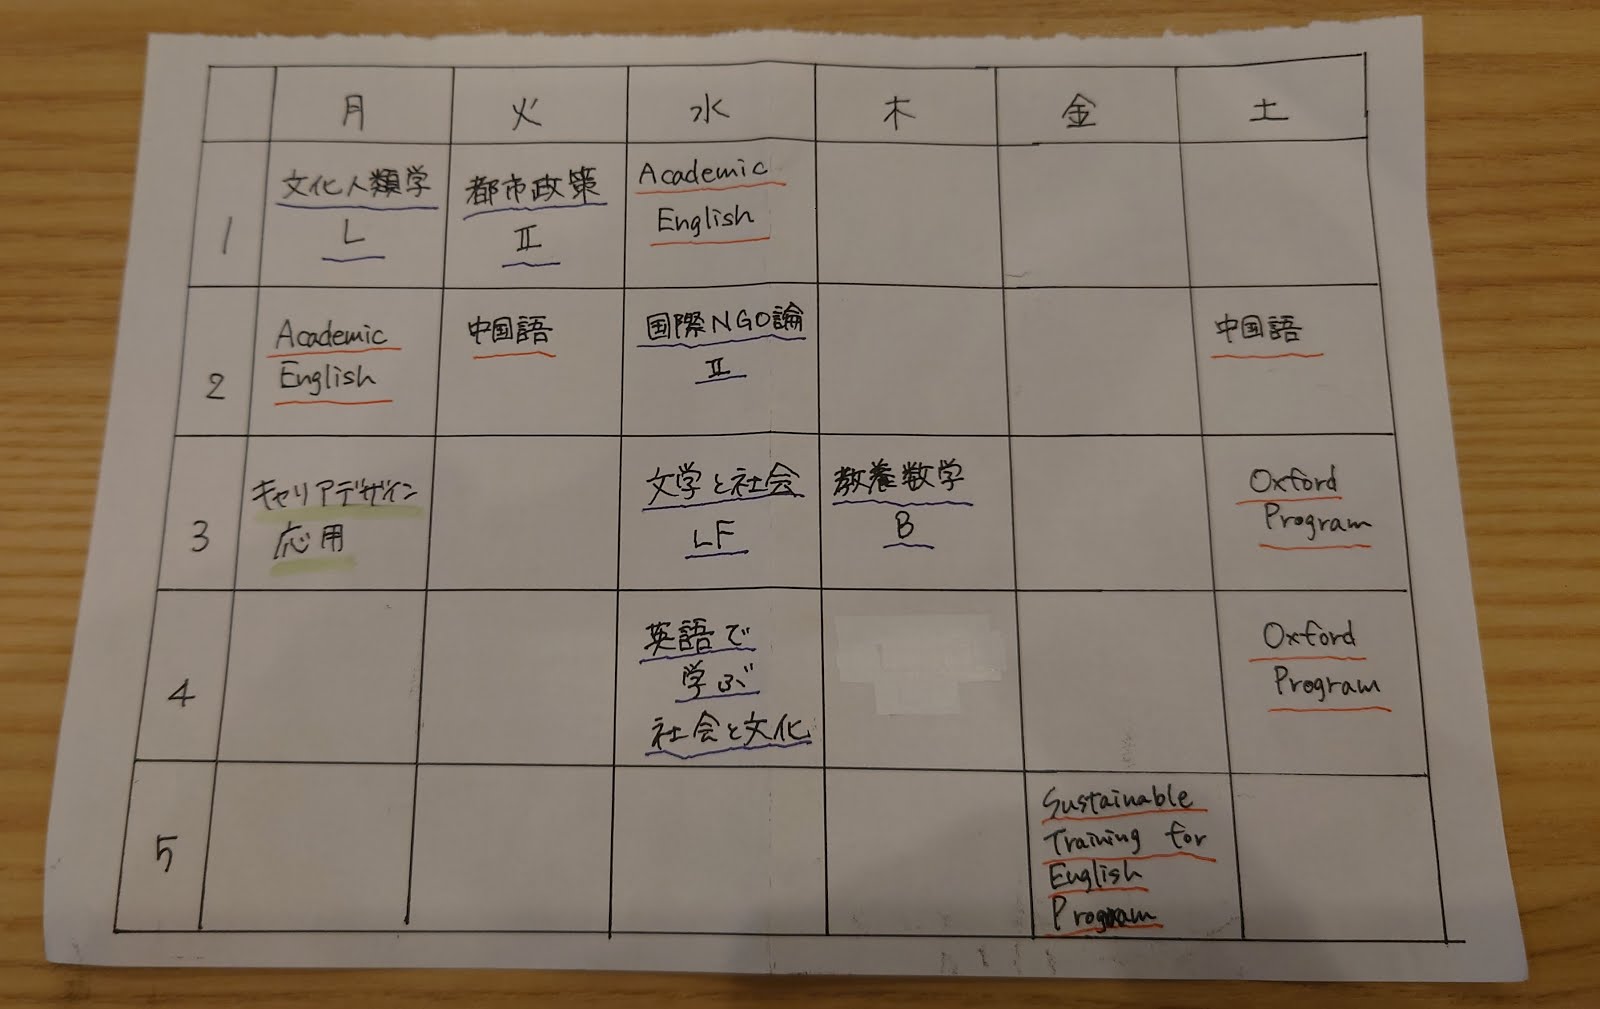 月 火 水 木 金 土
1
文化人類学
L
都市政策
II
Academic
English
2
Academic
English
中国語
国際NGO論
II
中国語
3
キャリアデザイン
応用
文学と社会
LF
教養数学
B
Oxford
Program
4
英語で
学ぶ
社会と文化
Oxford
Program
5
Sustainable
Training for
English
Program